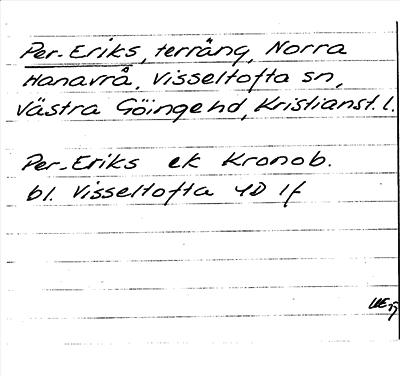 Per-Eriks, terräng, Norra
Hanavrå, Visseltofta sn,
Västra Göinge hd, Kristianst. l.
Per-Eriks ek Kronob.
bl. Visseltofta 4D 1f